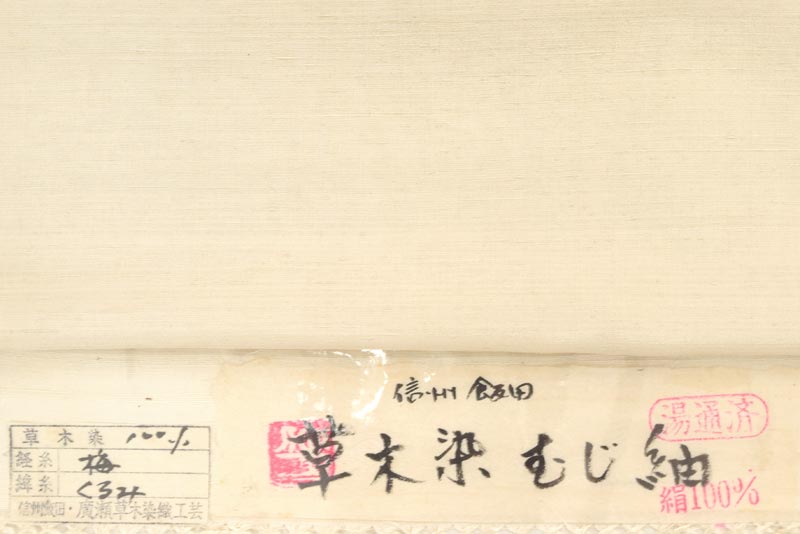 信州 飯田
草木染 むじ紬
湯通済
絹100%
草木染 100%
経糸 梅
緯糸 くるみ
信州飯田・廣瀬草木染織工芸